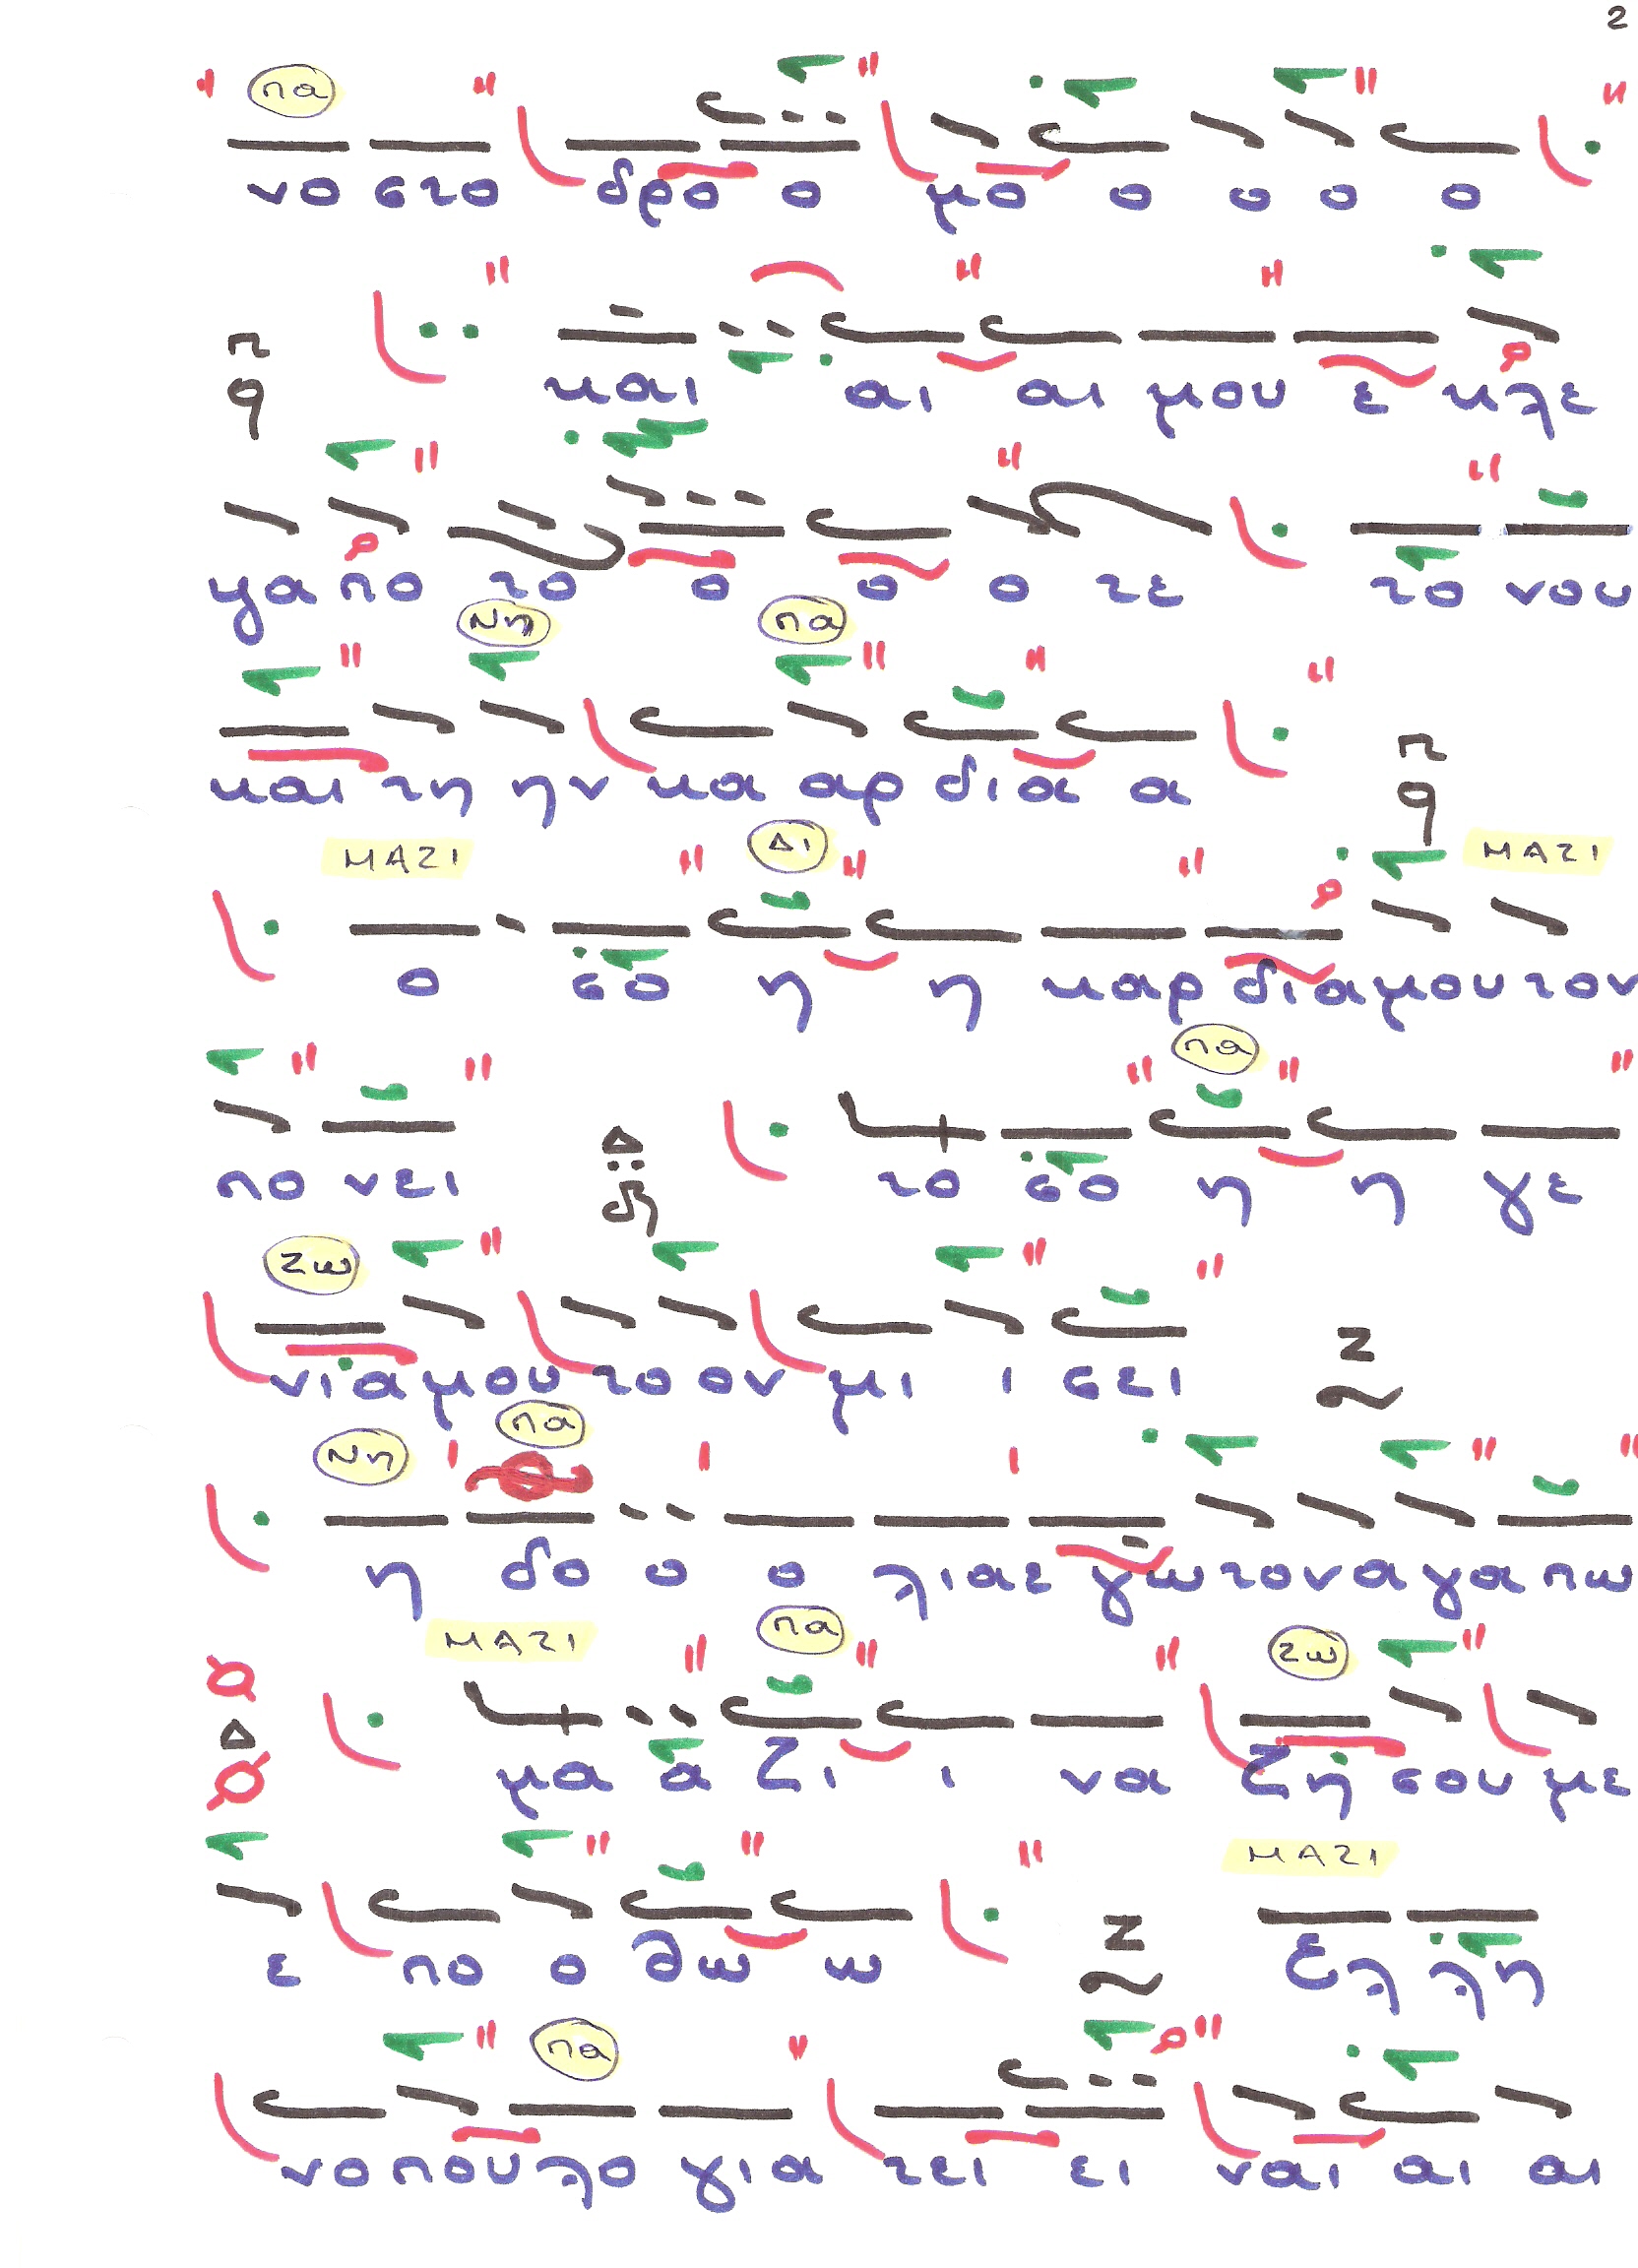 2
πα
νο στο δρο ο μο ο ο ο ο
π
q
και αι αι μου ε κλε
ψα πο το ο ο ο τε το νου
Νη πα
και τη ην κα αρ δια α
π
q
ΜΑΖΙ Δι ΜΑΖΙ
ο σο η η καρ δια μου τον
πα
πο νει Δ το σο η η γε
Ζω
νια μου το ον μι ι σει Ζ
Νη πα
η δο ο ο λια ε γω τον α γα πω
ΜΑΖΙ πα Ζω
Δ μα α ζι ι να ζη σου με
ΜΑΖΙ
ε πο ο θω ω Ζ Ελ λη
πα
νο που λο για τει ει ναι αι αι